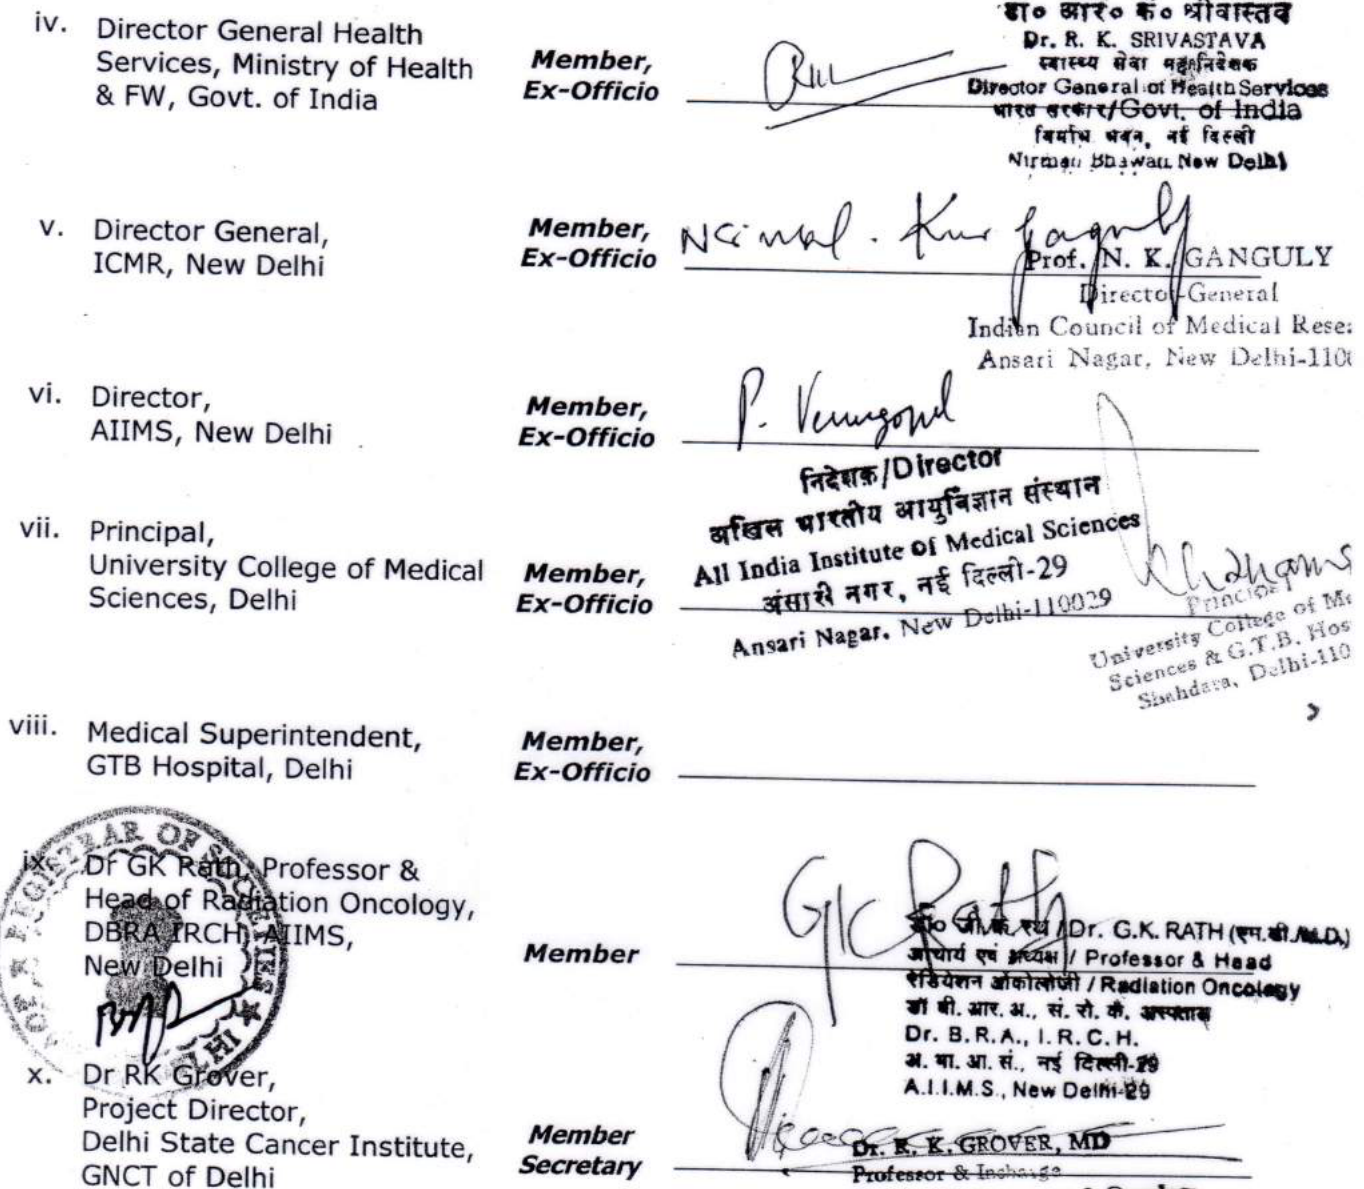 iv. Director General Health
Services, Ministry of Health
& FW, Govt. of India
Member,
Ex-Officio
डा० आर० के० श्रीवास्तव
Dr. R. K. SRIVASTAVA
स्वास्थ्य सेवा महानिदेशक
Director General of Health Services
भारत सरकार/Govt. of India
निर्माण भवन, नई दिल्ली
Nirman Bhawan New Delhi
v. Director General,
ICMR, New Delhi
Member,
Ex-Officio
Prof. N. K. GANGULY
Director-General
Indian Council of Medical Rese
Ansari Nagar, New Delhi-110
vi. Director,
AIIMS, New Delhi
Member,
Ex-Officio
P. Venugopal
निदेशक/Director
अखिल भारतीय आयुर्विज्ञान संस्थान
All India Institute of Medical Sciences
अंसारी नगर, नई दिल्ली-29
Ansari Nagar, New Delhi-110029
vii. Principal,
University College of Medical
Sciences, Delhi
Member,
Ex-Officio
Principal
University College of Me
Sciences & G.T.B. Hos
Shahdara, Delhi-110
viii. Medical Superintendent,
GTB Hospital, Delhi
Member,
Ex-Officio
ix. Dr GK Rath, Professor &
Head of Radiation Oncology,
DBRA IRCH, AIIMS,
New Delhi
Member
GK Rath
डॉ० जी.के. रथ / Dr. G.K. RATH (एम.डी./M.D.)
आचार्य एवं अध्यक्ष / Professor & Head
रेडियेशन ओंकोलोजी / Radiation Oncology
डॉ बी. आर. अ., सं. रो. कै. अस्पताल
Dr. B.R.A., I.R.C.H.
अ. भा. आ. सं., नई दिल्ली-29
A.I.I.M.S., New Delhi-29
REGISTRAR OF SOCIETIES
x. Dr RK Grover,
Project Director,
Delhi State Cancer Institute,
GNCT of Delhi
Member
Secretary
Dr. R. K. GROVER, MD
Professor & Incharge